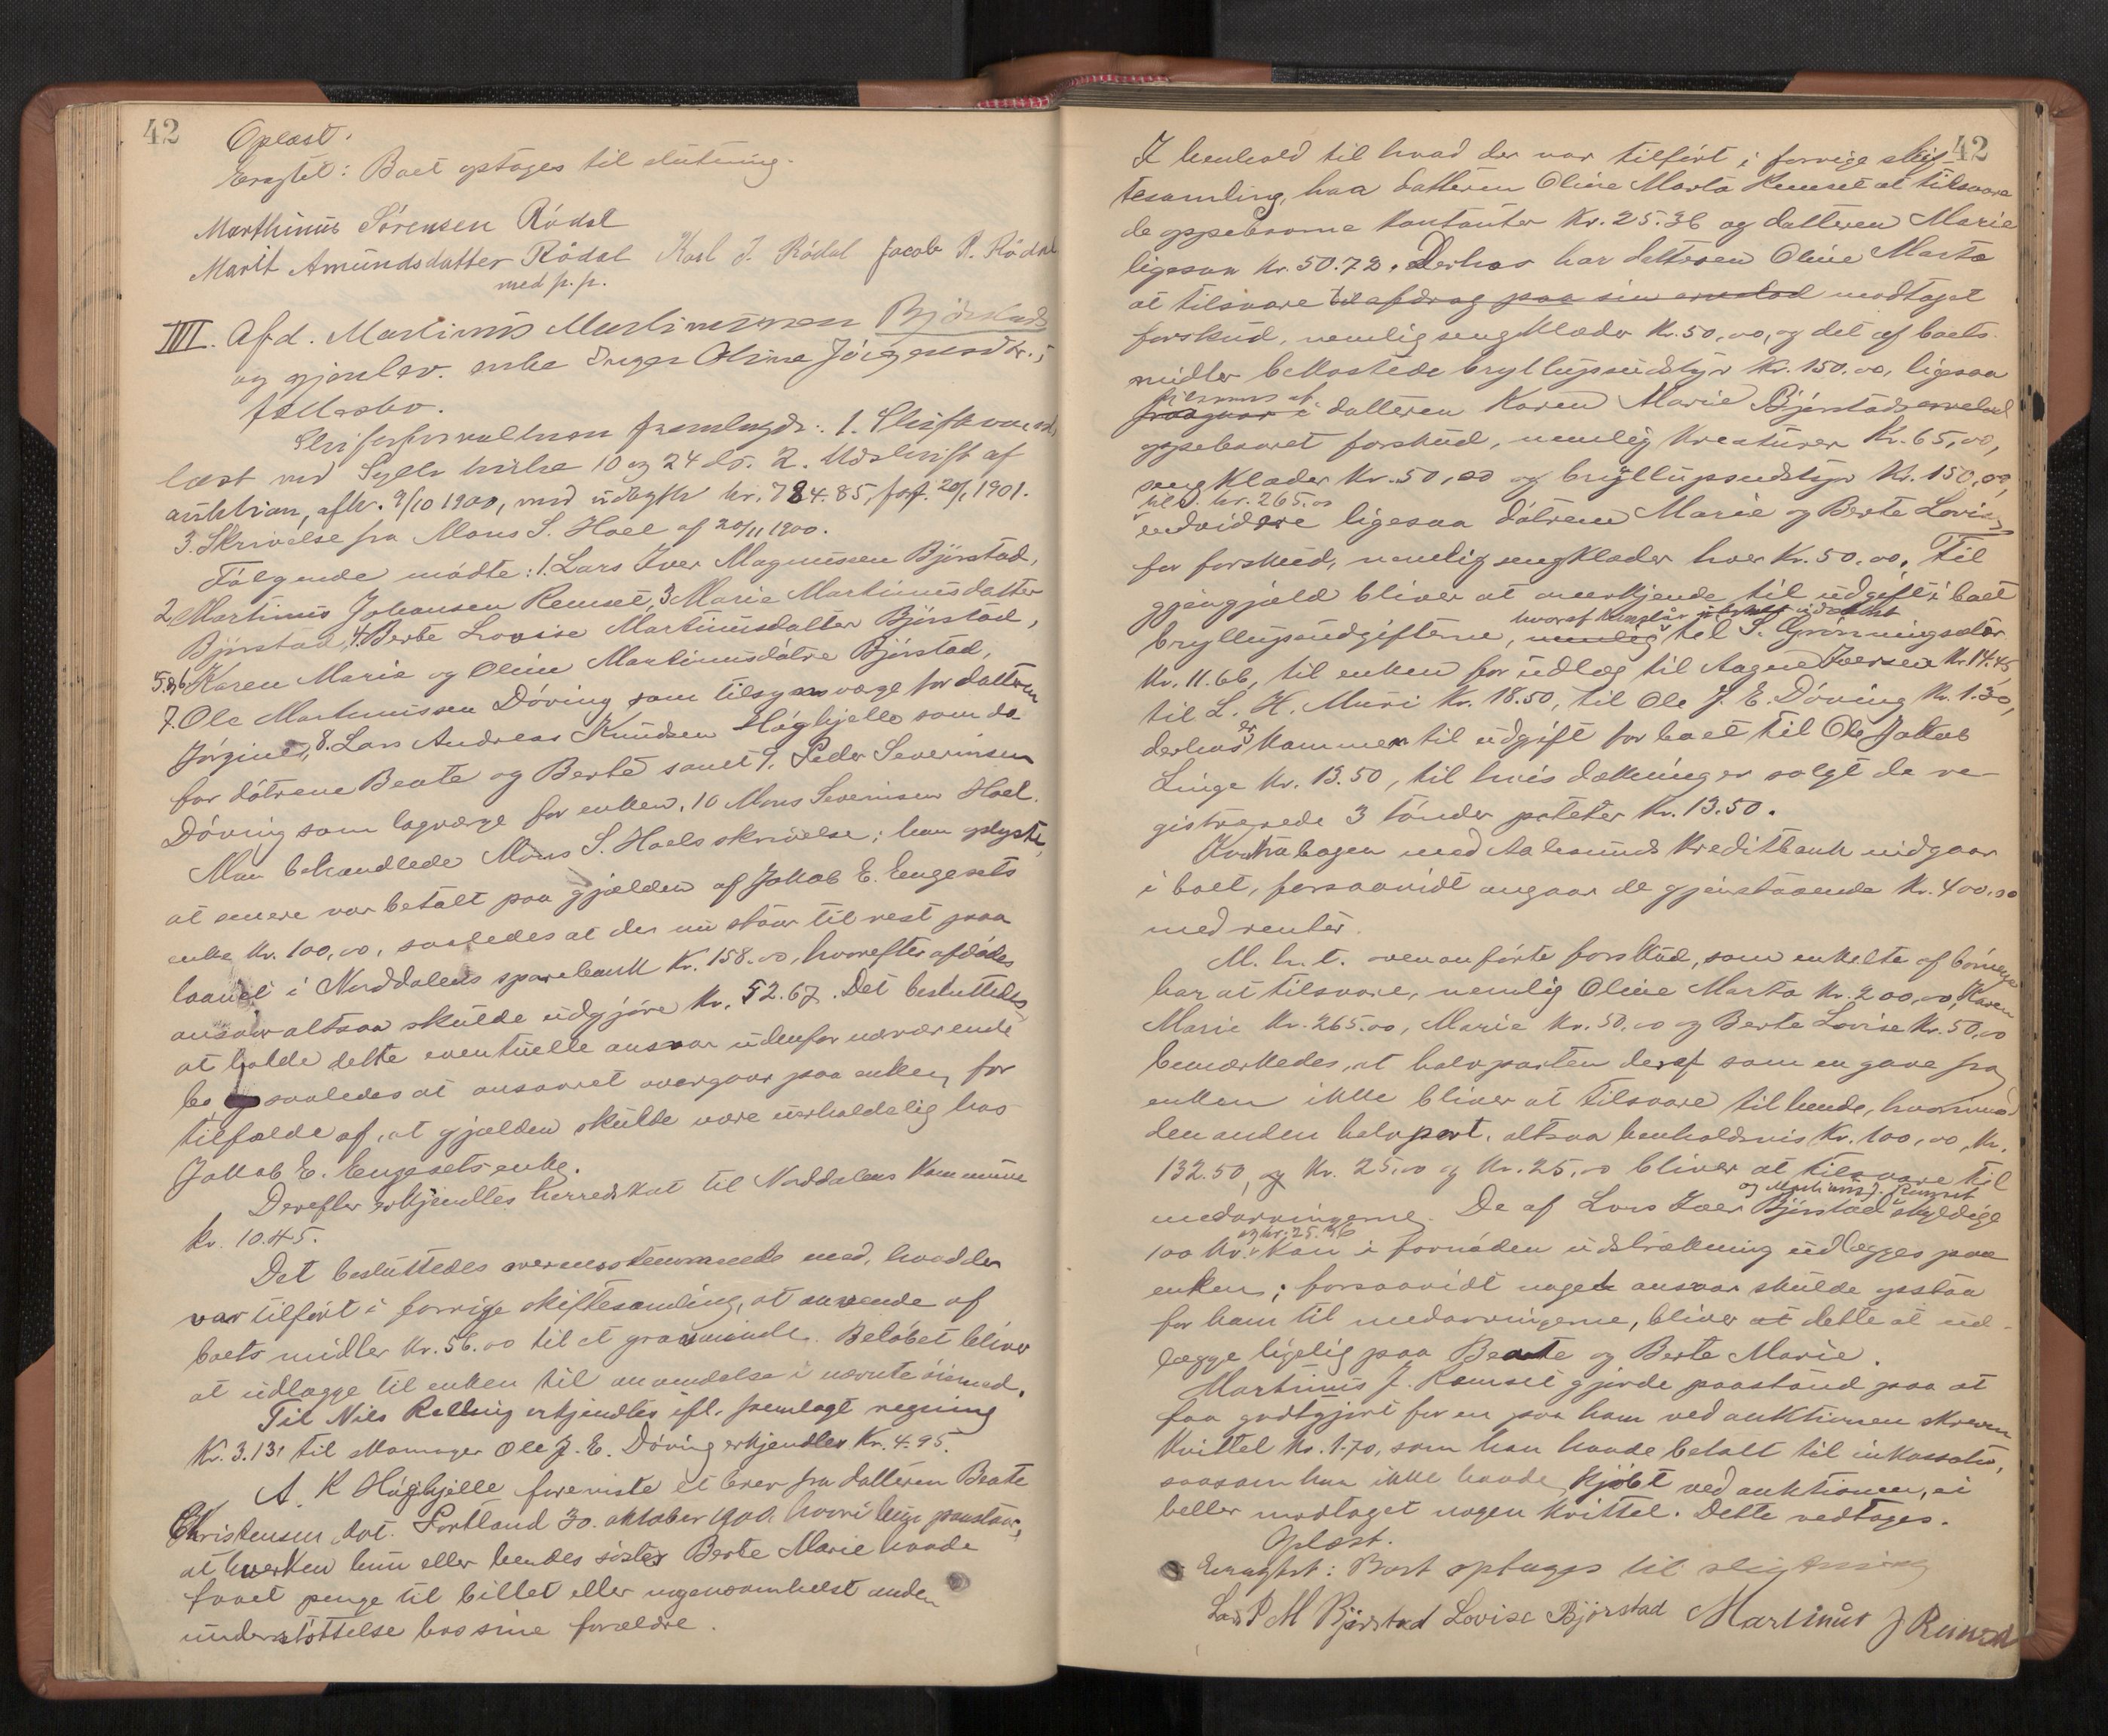 42
Oplæst.
Eragtet: Boet optages til slutning.
Marthinus Sørensen Rødal
Marit Amundsdatter Rødal Karl J. Rødal Jacob P. Rødal
med p. p.
III. Afd. Martinus Martinussen Bjørstads
og gjenlev. enke Inger Oline Jørgensdtr.s
fællesbo.
Skifteforvaltnren fremlagde: 1. Skiftevarsel
læst ved Sylte kirke 10 og 24 ds. 2. Udskrift af
auktion, afh. 9/10 1900, med udbytte kr. 784.85, forf. 20/1 1901.
3. Skrivelse fra Mons S. Hoel af 20/11 1900.
Følgende mødte: 1. Lars Iver Magnussen Bjørstad,
2. Martinus Johansen Remset, 3 Marie Martinusdatter
Bjørstad, 4. Berte Lovise Martinusdatter Bjørstad,
5. og 6. Karen Marie og Oline Martinusdøtre Bjørstad,
7. Ole Martinussen Døving som tilsynsværge for datteren
Jørgine, 8. Lars Andreas Knudsen Høghjelle som do
for døtrene Beate og Berte samt 9. Peder Severinsen
Døving som lagværge for enken. 10 Mons Severinsen Hoel.
Man behandlede Mons S. Hoels skrivelse; han oplyste,
at senere var betalt paa gjælden af Jakob E. Engesets
enke kr. 100,00, saaledes at der nu staar til rest paa
laanet i Norddalens sparebank kr. 158.00, hvorefter afdødes
ansvar altsaa skulde udgjøre kr. 52.67. Det besluttedes
at holde dette eventuelle ansvar udenfor nærværende
bo saaledes at ansvaret overgaar paa enken for
tilfælde af, at gjælden skulde være uerholdelig hos
Jakob E. Engesets enke.
Derefter erkjendtes herredskat til Norddalens kommune
kr. 10.45.
Det besluttedes overensstemmende med, hvad der
var tilført i forrige skiftesamling, at anvende af
boets midler kr. 56.00 til et gravminde. Beløbet bliver
at udlægge til enken til anvendelse i nævnte øiemed.
Til Nils Relling erkjendtes ifl. fremlagt regning
kr. 3.13, til Mamager Ole J. E. Døving erkjendtes kr. 4.95.
A. K Høghjelle foreviste et brev fra datteren Beate
Christensen, dat. Portland 30. oktober 1900. hvori hun paastaar,
at hverken hun eller hendes søster Berte Marie havde
faaet penge til billet eller nogensomhelst anden
understøttelse hos sine forældre.
42
I henhold til hvad der var tilført i forrige skif-
tesamling, har datteren Oline Marta Remset at tilsvare
de oppebaarne kontanter kr. 25.36 og datteren Marie
ligesaa kr. 50.72. Derhos har datteren Oline Marta
at tilsvare til afdrag paa sin arvelod modtaget
forskud, nemlig sengklæder kr. 50,00, og det af boets
midler bekostede bryllupsudstyr kr. 150.00, ligesaa
fragaar i datteren Karen Marie Bjørstads arvelod
oppebaaret forskud, nemlig kreaturer kr. 65,00,
sengklæder kr. 50,00 og bryllupsudstyr kr. 150,00,
tils. kr. 265.00
endvidere ligesaa døtrene Marie og Berte Lovise
for forskud, nemlig sengklæder hver kr. 50.00. Til
gjengjæld bliver at anerkjende til udgift i boet
bryllupsudgifterne, nemlig til S. Grønningsæter
kr. 11.66, til enken for udlæg til Aagne Iversen kr. 14.45,
til L. H. Muri kr. 18.50, til Ole J. E. Døving kr. 1.30,
derhos kommer til udgift for boet til Ole Jakob
Linge kr. 13.50, til hvis dækning er solgt de re-
gistrerede 3 tønder poteter kr. 13.50.
Kontrabogen med Aalesunds Kreditbank udgaar
i boet, forsaavidt angaar de gjenstaaende kr. 400.00
med renter.
M. h. t. ovenanførte forskud, som enkelte af børnene
har at tilsvare, nemlig Oline Marta kr. 200,00, Karen
Marie kr. 265.00, Marie kr. 50.00 og Berte Lovise kr. 50,00
bemærkedes, at halvparten deraf som en gave fra
enken ikke bliver at tilsvare til hende, hvorimod
den anden halvpart, altsaa henholdsvis kr. 100,00, kr.
132.50, og kr. 25,00 og kr. 25,00 bliver at tilsvare til
medarvingerne. De af Lars Iver Bjørstad og Martinus J. Remset skyldige
100 kr. og kr. 25.36 kan i fornøden udstrækning udlægges paa
enken; forsaavidt noget ansvar skulde opstaa
for ham til medarvingerne, bliver at dette at ud-
lægge ligelig paa Beate og Berte Marie.
Martinus J. Remset gjorde paastand paa at
faa godtgjort for en paa ham ved auktionen skreven
kvittel kr. 1.70, som han havde betalt til inkassator,
saasom han ikke havde kjøbt ved auktionen, ei
heller modtaget nogen kvittel. Dette vedtoges.
Oplæst.
Eragtet: Boet optages til slutning
Lars I M Bjørstad Lovise Bjørstad Martinus J Remset